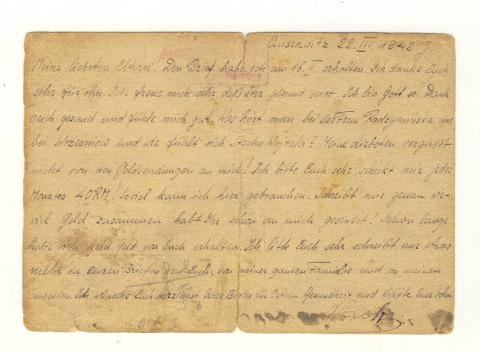 Auschwitz 22. III. 1942 J.
Meine liebsten Eltern! Den Brief habe ich am 16. II. erhalten. Ich danke Euch
sehr für ihn. Ich freue mich sehr daß Ihr gesund seit. Ich bin Gott sei Dank
auch gesund und fühle mich gut. Was hört man bei der Frau Radzymińska und
bei und wie fühlt sich ? Meine liebsten vergißt
nicht von den Geldsendungen an mich! Ich bitte Euch sehr schickt mir jedes
Monates 40 RM! Soviel kann ich hier gebrauchen. Schreibt mir genau wie-
viel Geld zusammen habt Ihr schon an mich gesendet! Schon lange
habe ich kein Geld von Euch erhalten. Ich bitte Euch sehr schreibt mir etwas
mehr in euren Briefen Euch, von meiner ganzen Familie und an meinen
Ich wünsche Euch Ostern Gesundheit und Kräfte Euer Sohn